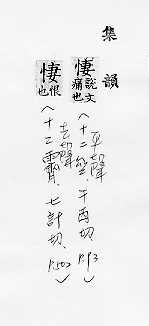 集韻
悽 說文痛也
〈十二齊、千西切、P.93
平聲
悽 恨也
〈十二霽、七計切、P.502
去聲